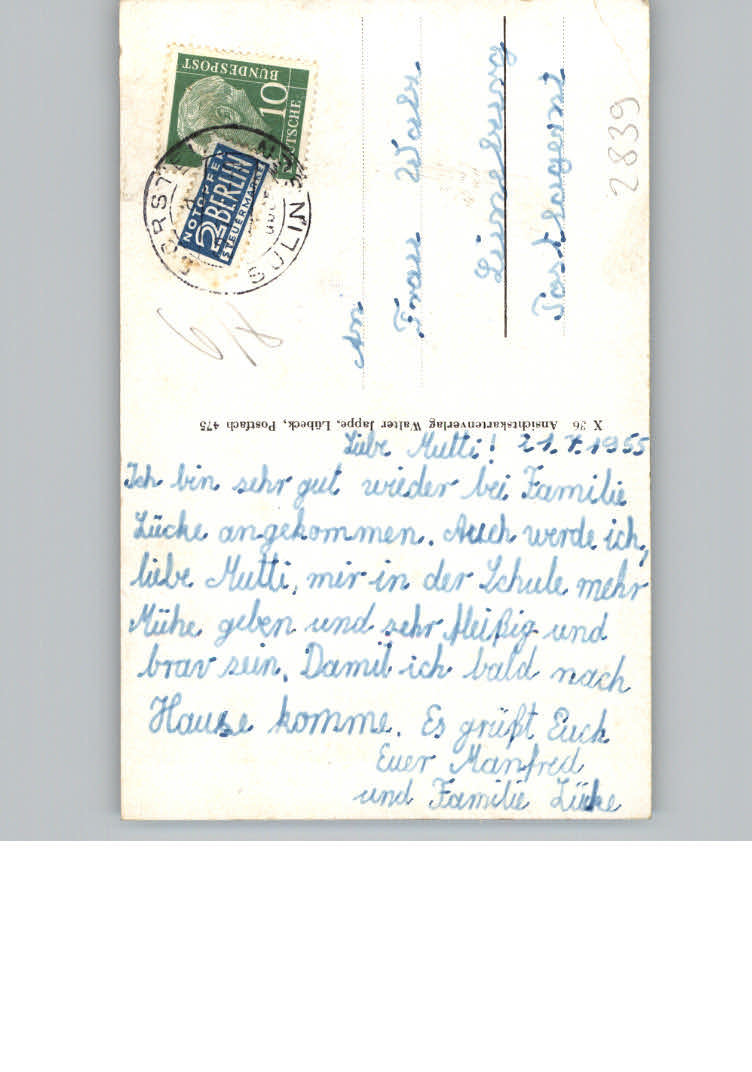 Liebe Mutti! 21.7.1955
Ich bin sehr gut wieder bei Familie
Lücke angekommen. Auch werde ich,
liebe Mutti, mir in der Schule mehr
Mühe geben und sehr fleißig und
brav sein. Damit ich bald nach
Hause komme. Es grüßt Euch
Euer Manfred
und Familie Lücke
X 36 Ansichtskartenverlag Walter Jappe, Lübeck, Postfach 475
An
Frau
Lüneburg
Postlagernd
2839
DEUTSCHE
BUNDESPOST
10
NOTOPFER
2 BERLIN
STEUERMARKE
SULINGEN